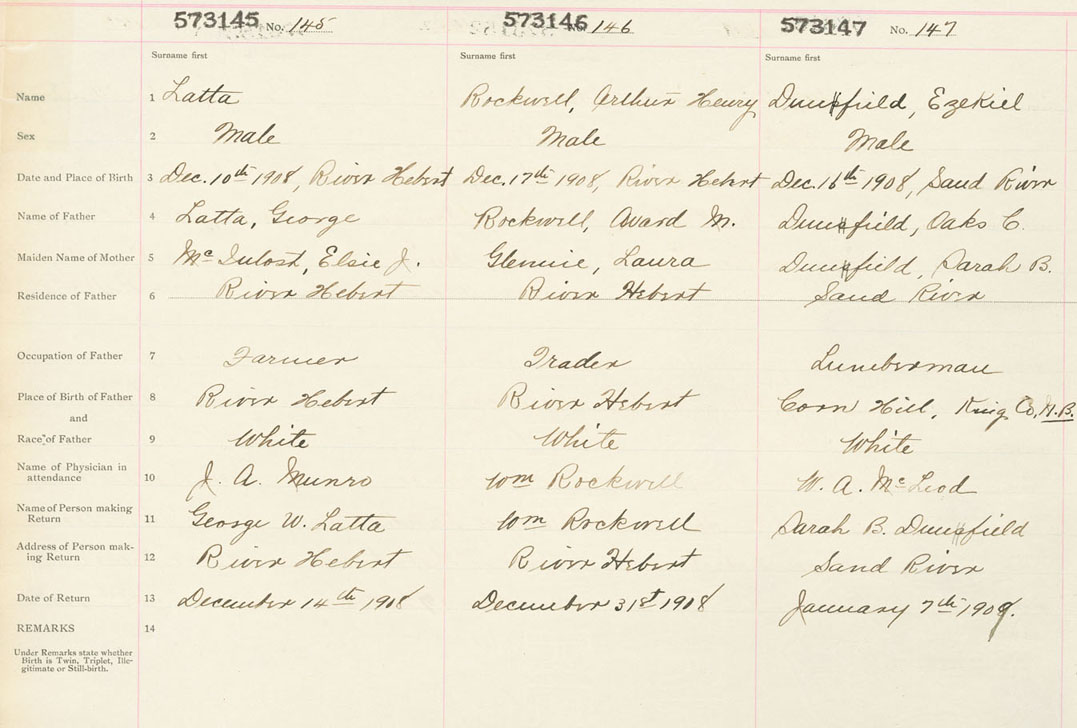 573145 No. 145 573146 No. 146 573147 No. 147
Surname first Surname first Surname first
Name 1 Latta Rockwell, Arthur Henry Ezekiel
Sex 2 Male Male Male
Date and Place of Birth 3 Dec. 10th 1908, River Hebert Dec. 17th 1908, River Hebert Dec. 16th 1908, Sand River
Name of Father 4 Latta, George Rockwell, Award M. Oaks C.
Maiden Name of Mother 5 Elsie J. Glennie, Laura Sarah B.
Residence of Father 6 River Hebert River Hebert Sand River
Occupation of Father 7 Farmer Trader Lumberman
Place of Birth of Father 8 River Hebert River Hebert Corn Hill, King Co, N.B.
and
Race of Father 9 White White White
Name of Physician in
attendance 10 J. A. Munro Wm Rockwell W. A. McLeod
Name of Person making
Return 11 George W. Latta Wm Rockwell Sarah B.
Address of Person mak-
ing Return 12 River Hebert River Hebert Sand River
Date of Return 13 December 14th 1908 December 31st 1908 January 7th 1909.
REMARKS 14
Under Remarks state whether
Birth is Twin, Triplet, Ille-
gitimate or Still-birth.